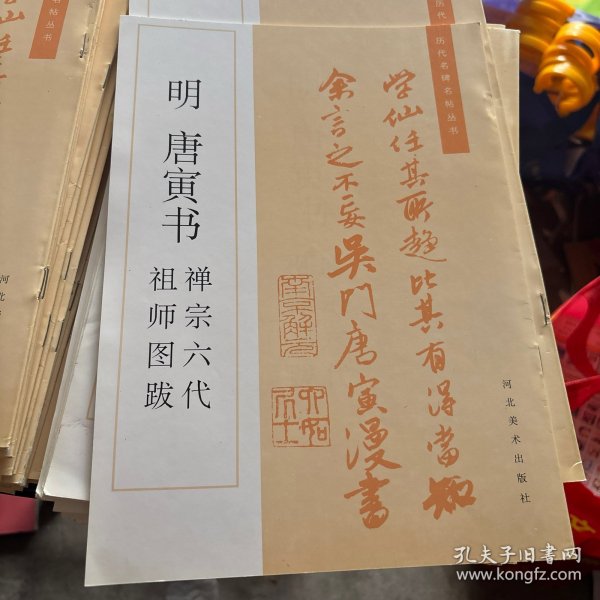 历代名碑名帖丛书
明 唐寅书
禅宗六代
祖师图跋
学仙任其所趋比其有得当知
余言之不妄吴门唐寅漫书
南京解元
六如居士
河北美术出版社
历代
名帖丛书
学仙任
河北
孔夫子旧书网
www.kongfz.com